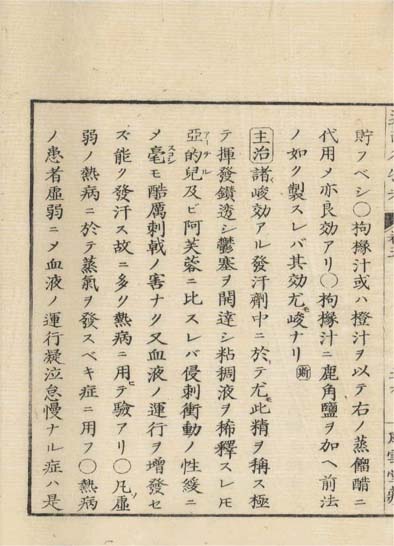 貯フベシ〇枸櫞汁或ハ橙汁ヲ以テ右ノ蒸餾醋ニ
代用メ亦良効アリ〇枸櫞汁ニ鹿角鹽ヲ加ヘ前法
ノ如ク製スレバ其効尤モ峻ナリ
主治 諸峻効アル發汗劑中ニ於テ尤モ此精ヲ稱ス極
テ揮發鑚透シ鬱塞ヲ開達シ粘稠液ヲ稀釋スレ𪜈
亞的兒アーテル及ビ阿芙蓉ニ比スレバ侵刺衝動ノ性緩ニ
メ毫スコシモ酷厲刺戟ノ害ナク又血液ノ運行ヲ增發セ
ズ能ク發汗ス故ニ多ク熱病ニ用テ驗アリ〇凡ソ虛
弱ノ熱病ニ於テ蒸氣ヲ發スベキ症ニ用フ〇熱病
ノ患者虛弱ニメ血液ノ運行凝泣怠慢ナル症ハ是